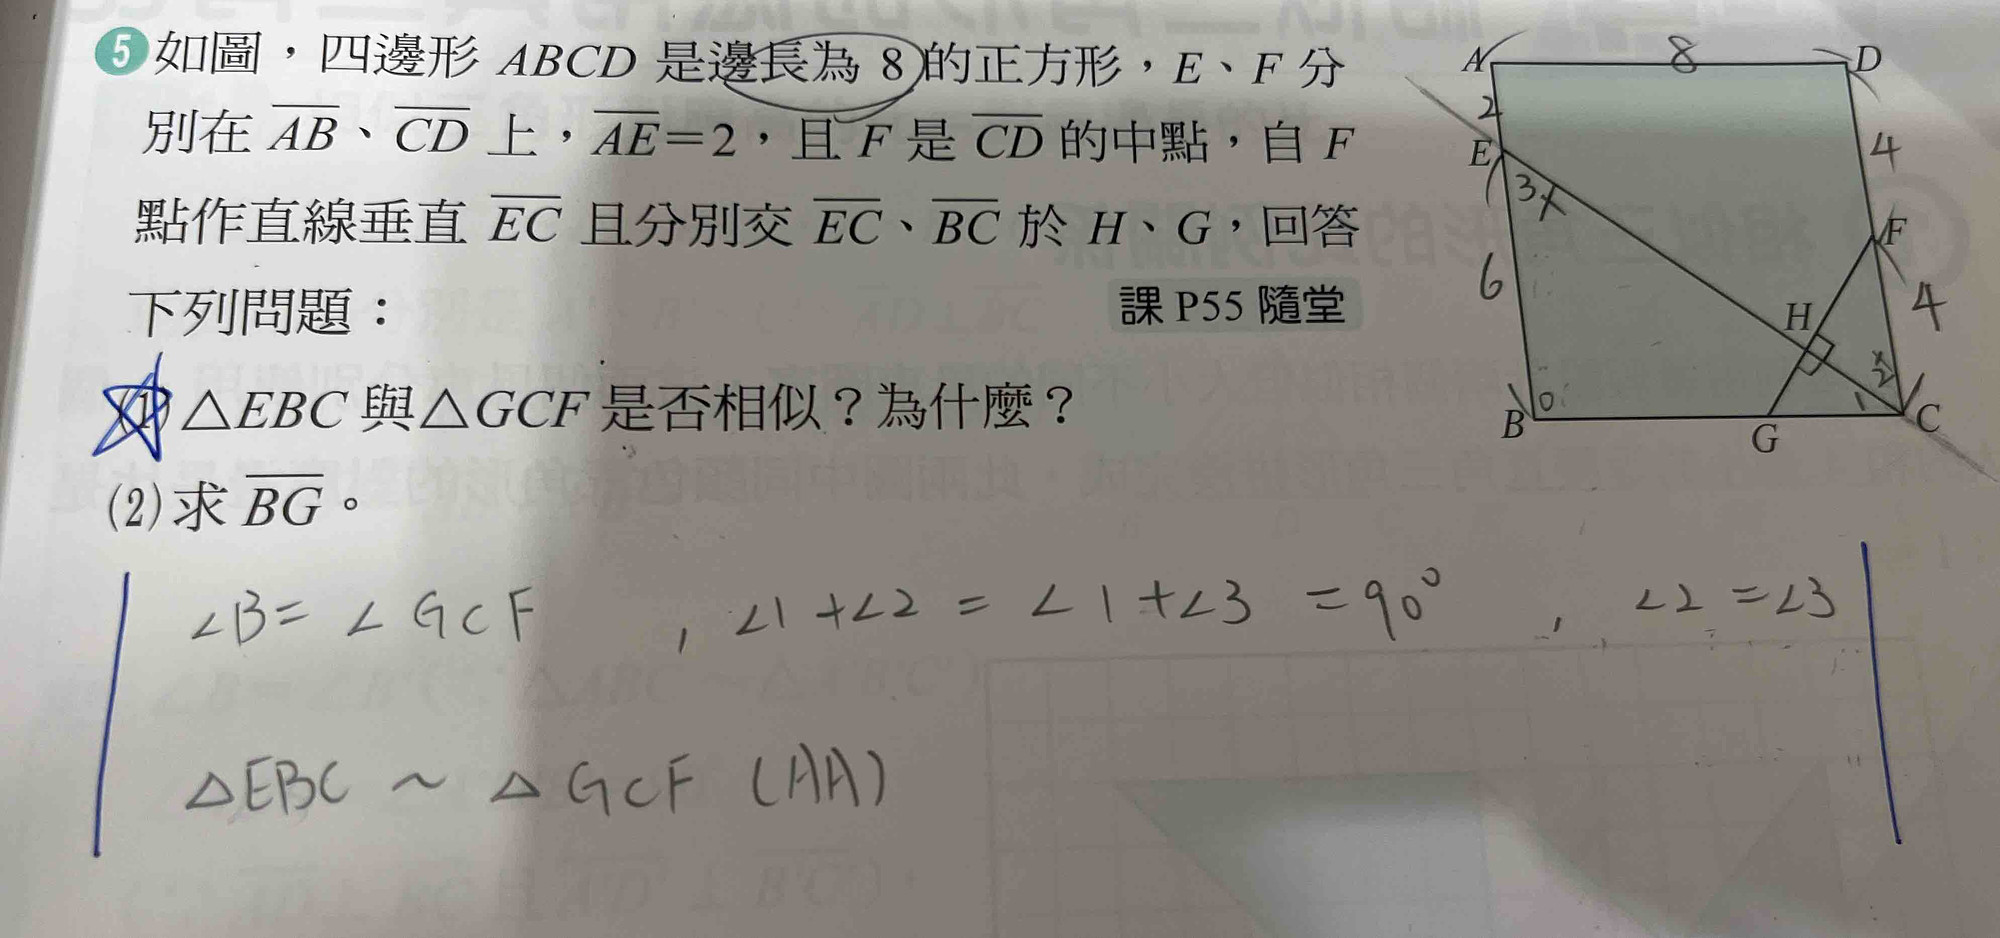 5 如圖，四邊形 ABCD 是邊長為 8 的正方形，E、F 分
別在 AB、CD 上，AE=2，且 F 是 CD 的中點，自 F
點作直線垂直 EC 且分別交 EC、BC 於 H、G，回答
下列問題：
課 P55 隨堂
(1) △EBC 與 △GCF 是否相似？為什麼？
(2) 求 BG。
A 8 D
2
E 3 x 4
F
6 H 4
2 x
B 0 1 C
G
∠B = ∠GCF ，∠1+∠2 = ∠1+∠3 = 90° ，∠2 = ∠3
△EBC ~ △GCF (AA)